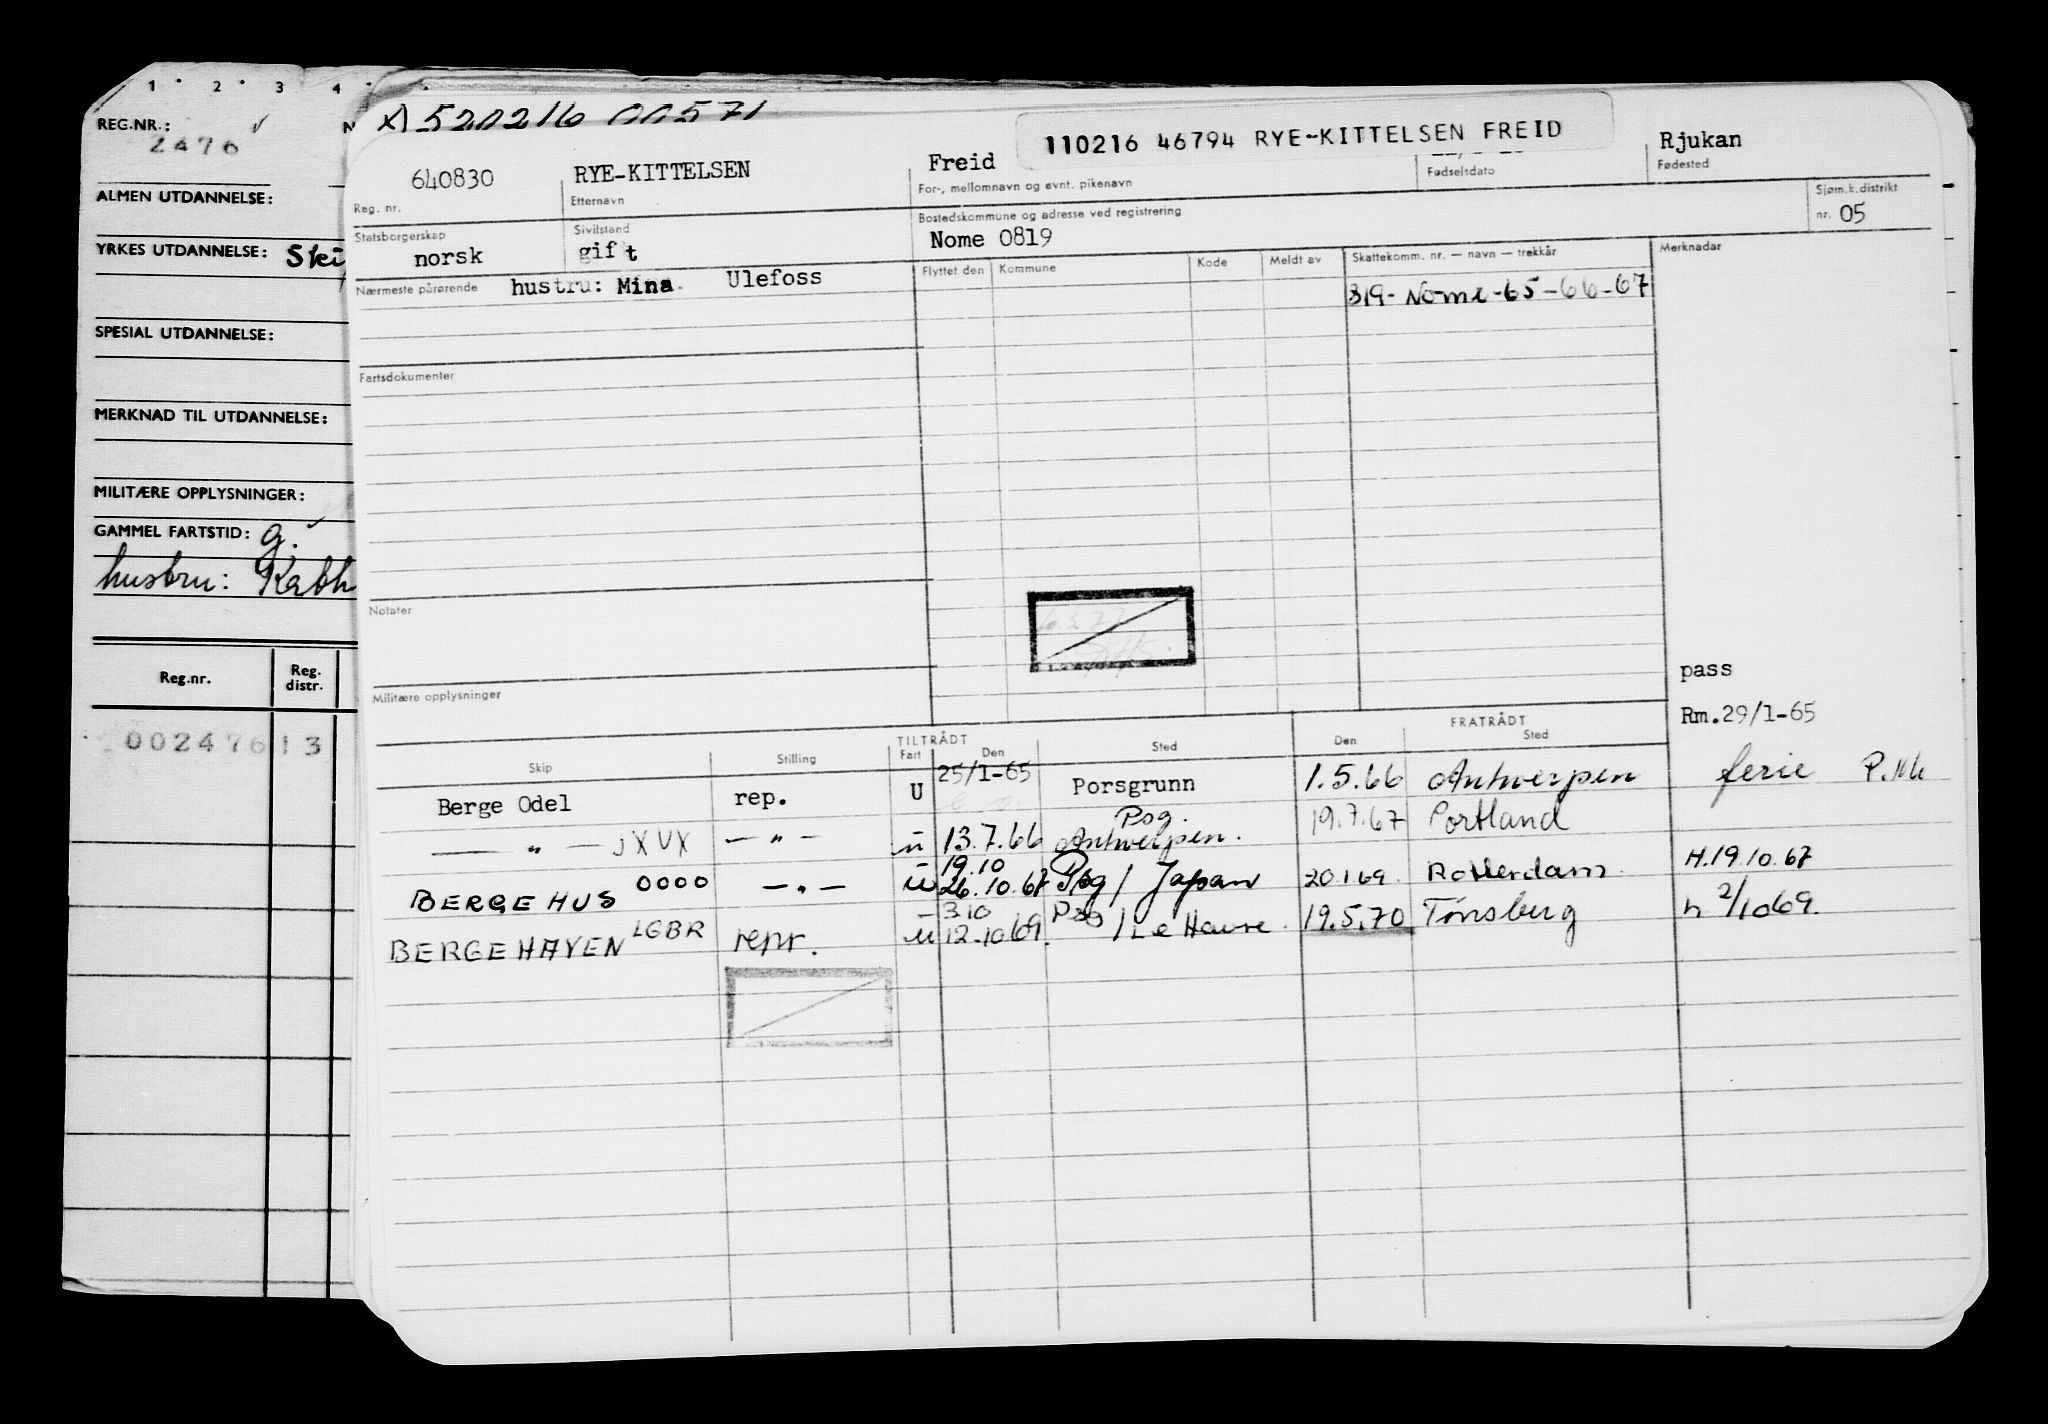 1 2 3 4
REG.NR.: N
2476
ALMEN UTDANNELSE:
YRKES UTDANNELSE:
SPESIAL UTDANNELSE:
MERKNAD TIL UTDANNELSE:
MILITÆRE OPPLYSNINGER:
GAMMEL FARTSTID: g.
hustru: Kath
Reg.nr. Reg. distr.
002476 13
520216 00571
110216 46794 RYE-KITTELSEN FREID
640830 RYE-KITTELSEN Freid Rjukan
Reg. nr. Etternavn For-, mellomnavn og evnt. pikenavn Fødselsdato Fødested
Statsborgerskap Sivilstand Bostedskommune og adresse ved registrering Sjøm.k.distrikt
norsk gift Nome 0819 nr. 05
Nærmeste pårørende hustru: Mina. Ulefoss
Flyttet den Kommune Kode Meldt av Skattekomm. nr. — navn — trekkår Merknader
319- Nome-65-66-67
Fartsdokumenter
Notater
Militære opplysninger
pass
Rm.29/1-65
TILTRÅDT FRATRÅDT
Skip Stilling Fart Den Sted Den Sted
Berge Odel rep. U 25/1-65 Porsgrunn 1.5.66 Antwerpen ferie
— " — JXUX — " — u 13.7.66 Psg. Antwerpen. 19.7.67 Portland
BERGEHUS 0000 — " — u 19.10 26.10.67 Psg / Japan 20.1.69. Rotterdam. H.19.10.67
BERGEHAVEN LGBR repr. u 3.10 12.10.69. Psg / Le Havre. 19.5.70 Tønsberg h 2/10 69.